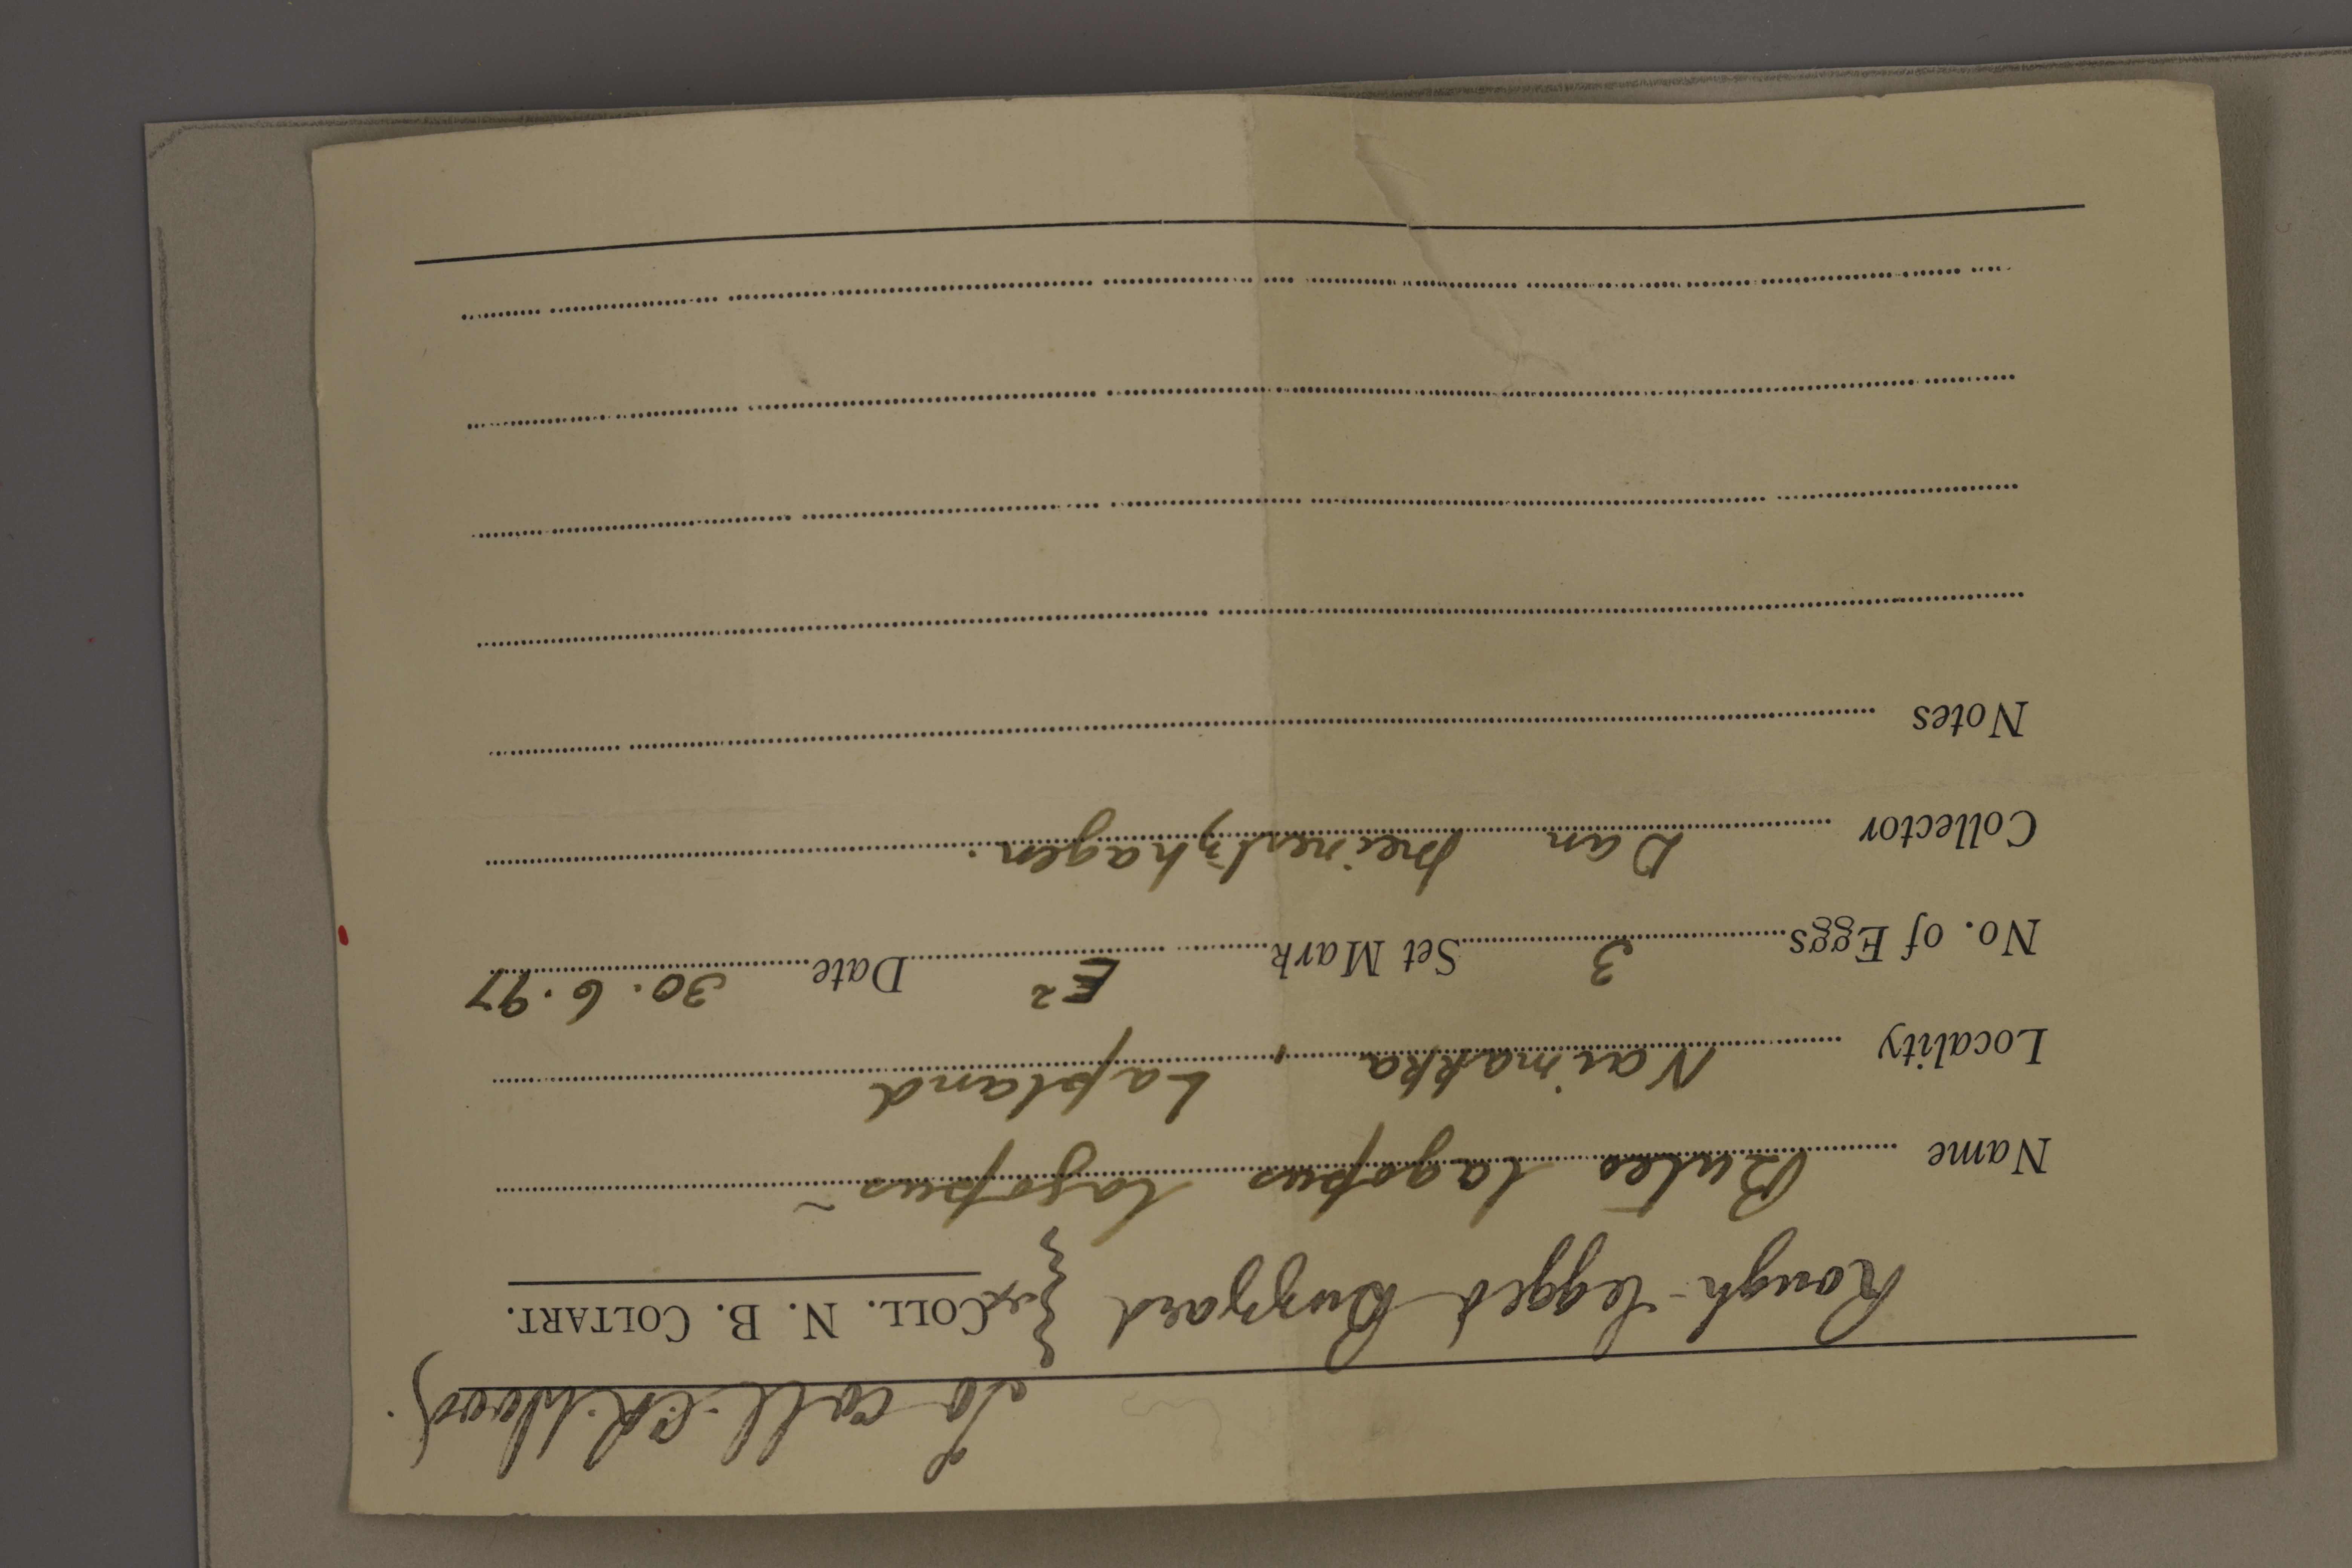 To coll. C.R. Wood.
Rough-legged Buzzard } ex COLL. N. B. COLTART.
Name Buteo lagopus lagopus ~
Locality Naimakka, Lapland
No. of Eggs 3 Set Mark E² Date 30.6.97
Collector Dan Meinertzhagen.
Notes